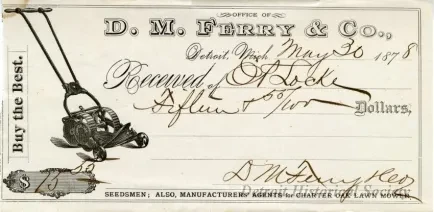 OFFICE OF
D. M. FERRY & CO.,
Detroit, Mich. May 30 1878
Received of O A Locke
Fifteen & 50/100 Dollars,
Buy the Best.
$ 15 50
D M Ferry & Co
SEEDSMEN; ALSO, MANUFACTURERS' AGENTS for CHARTER OAK LAWN MOWER.
Detroit Historical Society